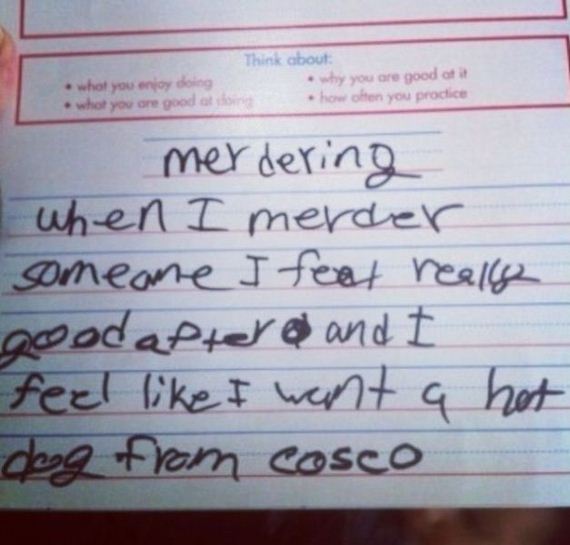 Think about:
• what you enjoy doing • why you are good at it
• what you are good at doing • how often you practice
merdering
when I merder
someone I feat really
good after and I
feel like I want a hot
dog from cosco